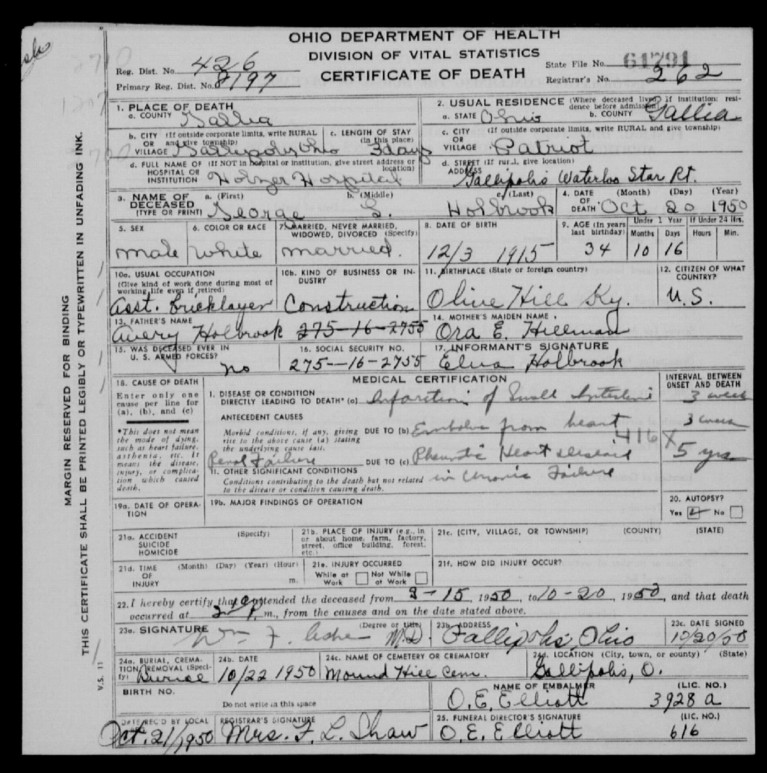 OHIO DEPARTMENT OF HEALTH
DIVISION OF VITAL STATISTICS
CERTIFICATE OF DEATH
Reg. Dist. No. 426
Primary Reg. Dist. No. 8197
State File No. 61791
Registrar's No. 262
1. PLACE OF DEATH
a. COUNTY Gallia
b. CITY (If outside corporate limits, write RURAL
OR and give township)
VILLAGE Gallipolis Ohio
c. LENGTH OF STAY
(in this place)
7 days
d. FULL NAME OF (If NOT in hospital or institution, give street address or
location)
HOSPITAL OR
INSTITUTION Holzer Hospital
2. USUAL RESIDENCE (Where deceased lived if institution: resi-
dence before admission)
a. STATE Ohio b. COUNTY Gallia
c. CITY (If outside corporate limits, write RURAL and give township)
OR
VILLAGE Patriot
d. STREET (If rural, give location)
ADDRESS Gallipolis Waterloo Star Rt.
3. NAME OF
DECEASED
(TYPE OR PRINT)
a. (First) b. (Middle) c. (Last)
George L. Holbrook
4. DATE OF DEATH (Month) (Day) (Year)
Oct 20 1950
5. SEX
male
6. COLOR OR RACE
white
7. MARRIED, NEVER MARRIED,
WIDOWED, DIVORCED (Specify)
married.
8. DATE OF BIRTH
12/3 1915
9. AGE (In years
last birthday)
34
Under 1 Year If Under 24 Hrs.
Months Days Hours Min.
10 16
10a. USUAL OCCUPATION
(Give kind of work done during most of
working life even if retired)
Asst. Bricklayer
10b. KIND OF BUSINESS OR IN-
DUSTRY
Construction
11. BIRTHPLACE (State or foreign country)
Olive Hill Ky.
12. CITIZEN OF WHAT
COUNTRY?
U.S.
13. FATHER'S NAME
Avery Holbrook 275-16-2755
14. MOTHER'S MAIDEN NAME
Ora E. Hillman
15. WAS DECEASED EVER IN
U. S. ARMED FORCES?
no
16. SOCIAL SECURITY NO.
275-16-2755
17. INFORMANT'S SIGNATURE
Holbrook
18. CAUSE OF DEATH
Enter only one
cause per line for
(a), (b), and (c)
*This does not mean
the mode of dying,
such as heart failure,
asthenia, etc. It
means the disease,
injury, or complica-
tion which caused
death.
MEDICAL CERTIFICATION
INTERVAL BETWEEN
ONSET AND DEATH
1. DISEASE OR CONDITION
DIRECTLY LEADING TO DEATH* (a) Infarction of Small Intestine 3 weeks
ANTECEDENT CAUSES
Morbid conditions, if any, giving
rise to the above cause (a) stating
the underlying cause last.
DUE TO (b) Embolus from heart 3 weeks
416 X
Renal Failure DUE TO (c) Rheumatic Heart disease 5 yrs
in Chronic Failure
11. OTHER SIGNIFICANT CONDITIONS
Conditions contributing to the death but not related
to the disease or condition causing death.
19a. DATE OF OPERA-
TION
19b. MAJOR FINDINGS OF OPERATION
20. AUTOPSY?
Yes No
21a. ACCIDENT (Specify)
SUICIDE
HOMICIDE
21b. PLACE OF INJURY (e.g., in
or about home, farm, factory,
street, office building, forest,
etc.)
21c. (CITY, VILLAGE, OR TOWNSHIP) (COUNTY) (STATE)
21d. TIME (Month) (Day) (Year) (Hour)
OF
INJURY m.
21e. INJURY OCCURRED
While at Work Not While at Work
21f. HOW DID INJURY OCCUR?
22. I hereby certify that I attended the deceased from 9-15, 1950, to 10-20, 1950, and that death
occurred at m., from the causes and on the date stated above.
23a. SIGNATURE (Degree or title)
Wm F. M.D.
23b. ADDRESS
Gallipolis, Ohio
23c. DATE SIGNED
10/20/50
24a. BURIAL, CREMA-
TION, REMOVAL (Speci-
fy)
Burial
24b. DATE
10/22 1950
24c. NAME OF CEMETERY OR CREMATORY
Mound Hill Cem.
24d. LOCATION (City, town, or county) (State)
Gallipolis, O.
BIRTH NO.
Do not write in this space
NAME OF EMBALMER (LIC. NO.)
O.E. Elliott 3928 a
DATE REC'D BY LOCAL
Oct. 21/1950
REGISTRAR'S SIGNATURE
Mrs. F. L. Shaw
25. FUNERAL DIRECTOR'S SIGNATURE (LIC. NO.)
O.E. Elliott 616
MARGIN RESERVED FOR BINDING
THIS CERTIFICATE SHALL BE PRINTED LEGIBLY OR TYPEWRITTEN IN UNFADING INK.
V.S. 11